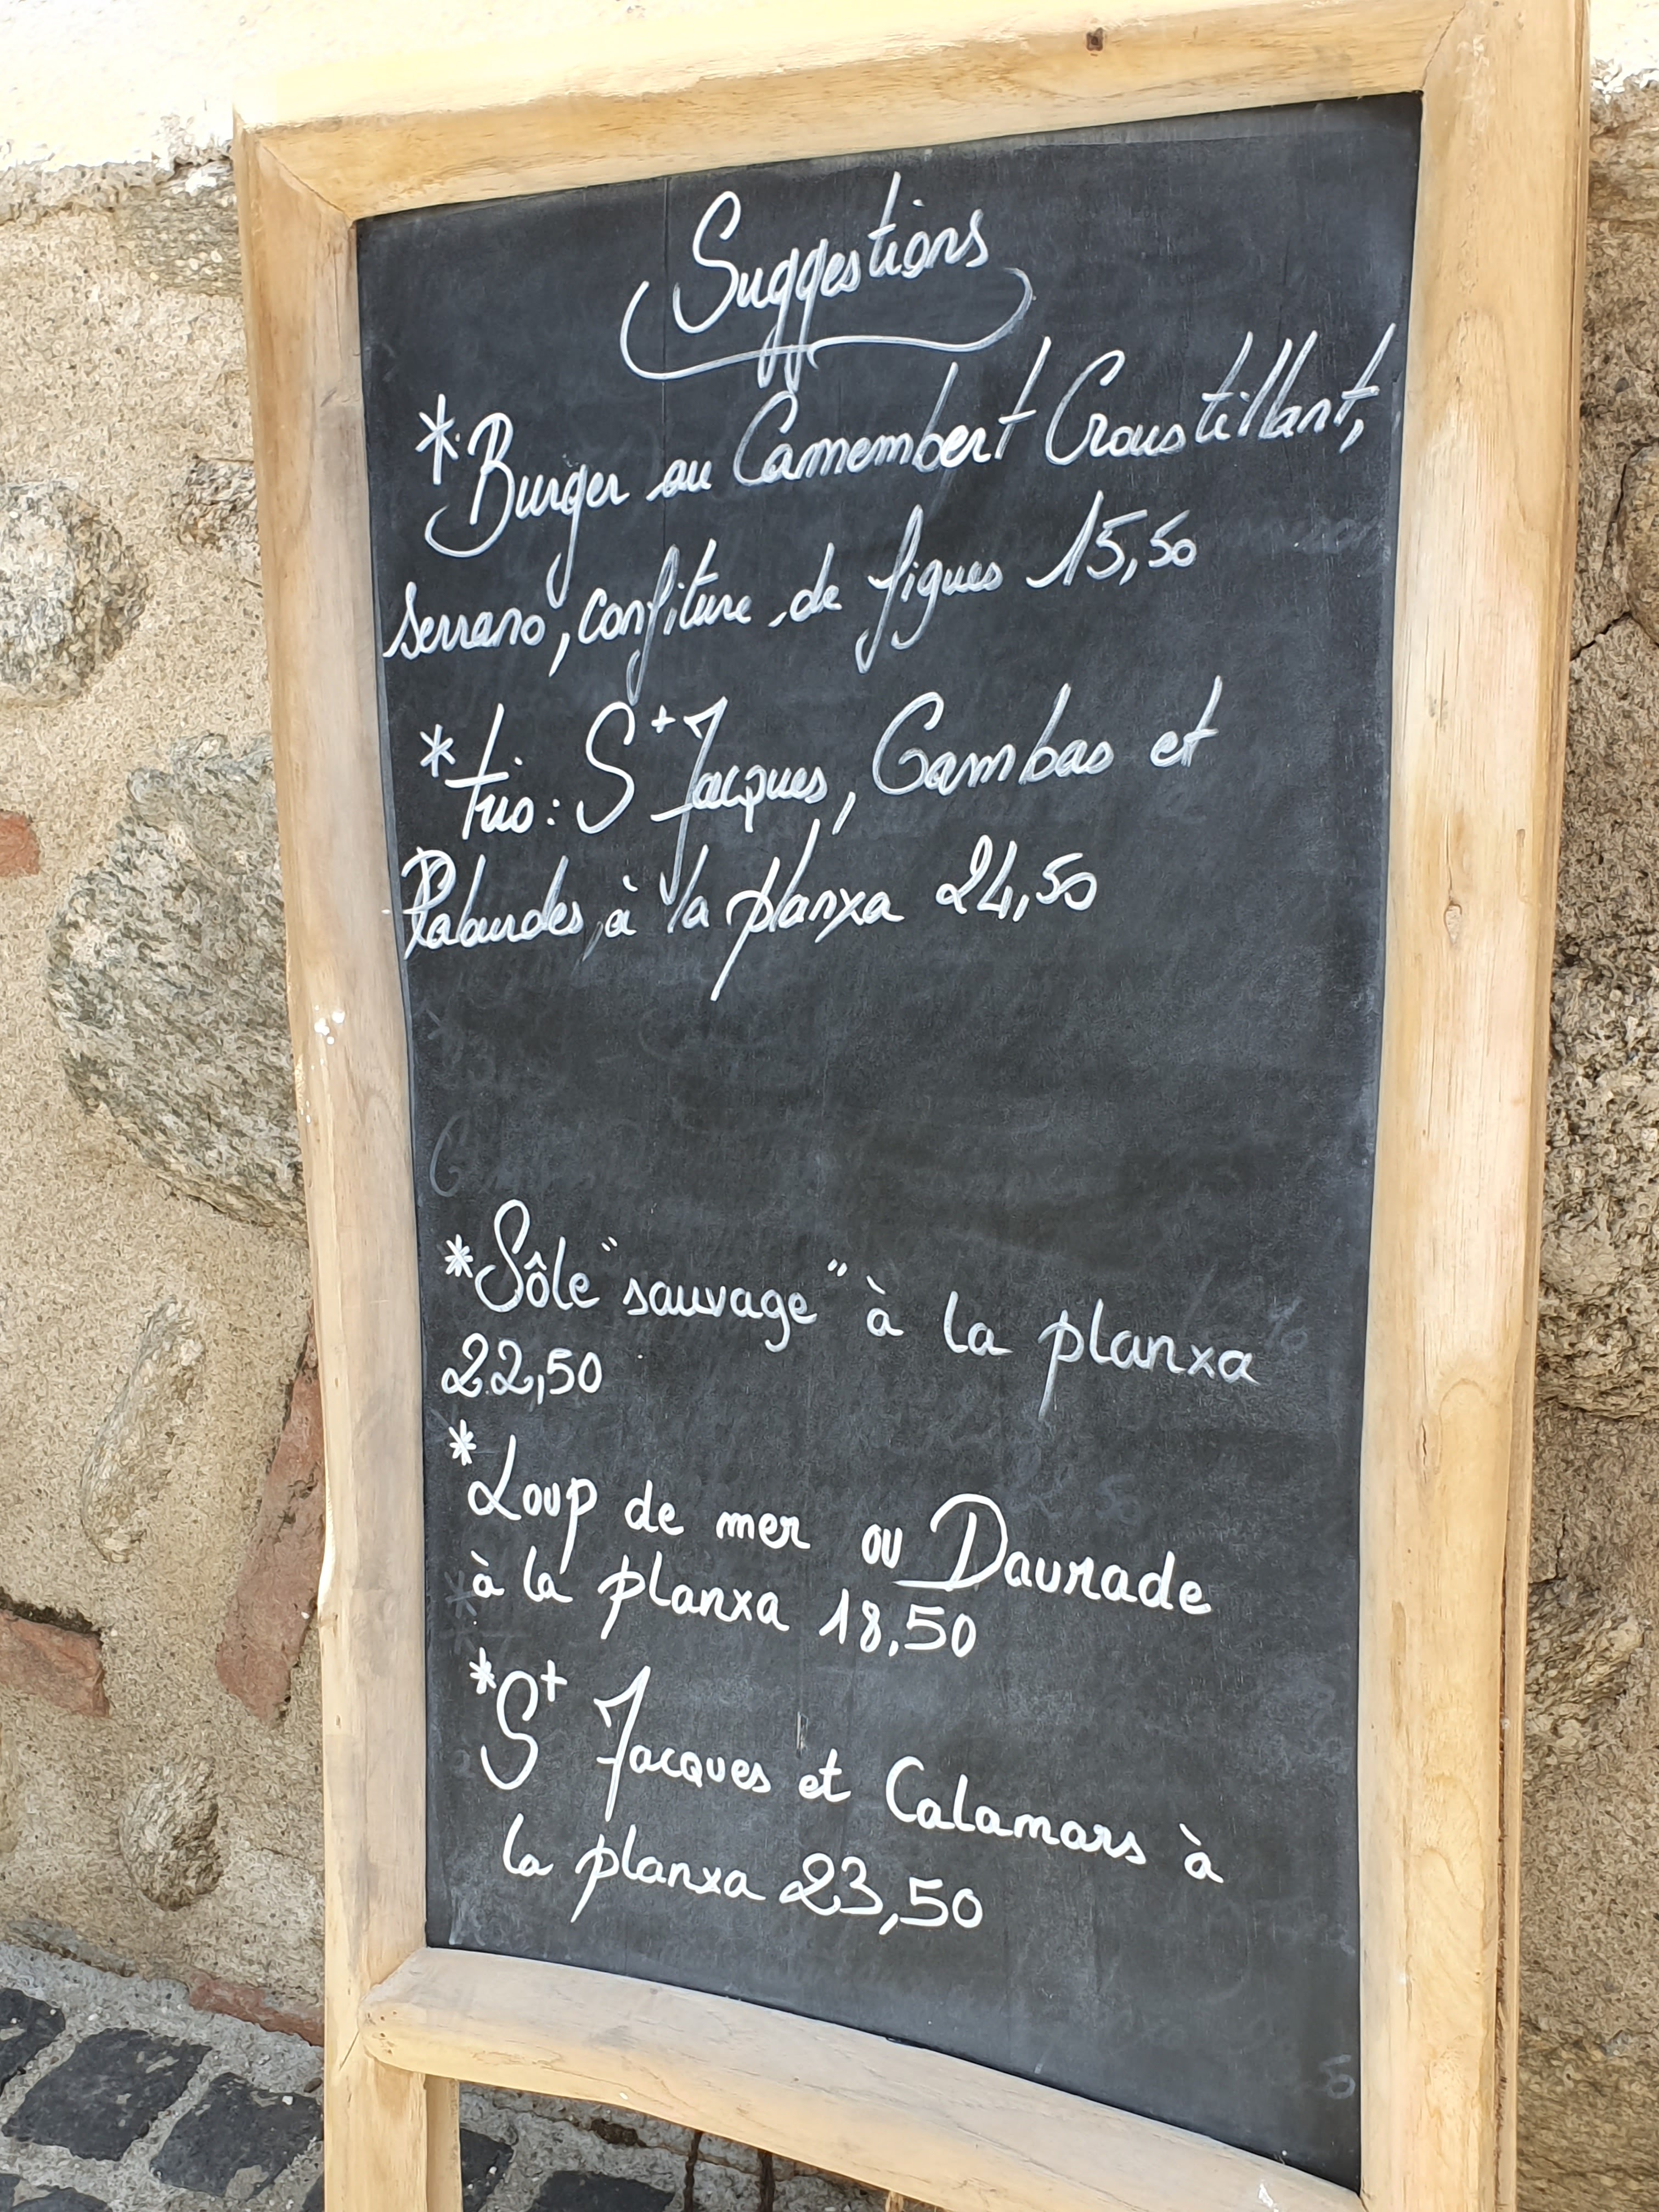 Suggestions
* Burger au Camembert Croustillant,
serrano, confiture de figues 15,50
* trio : St Jacques, Gambas et
Palourdes, à la planxa 24,50
* Sôle "sauvage" à la planxa
22,50
* Loup de mer ou Daurade
à la planxa 18,50
* St Jacques et Calamars à
la planxa 23,50